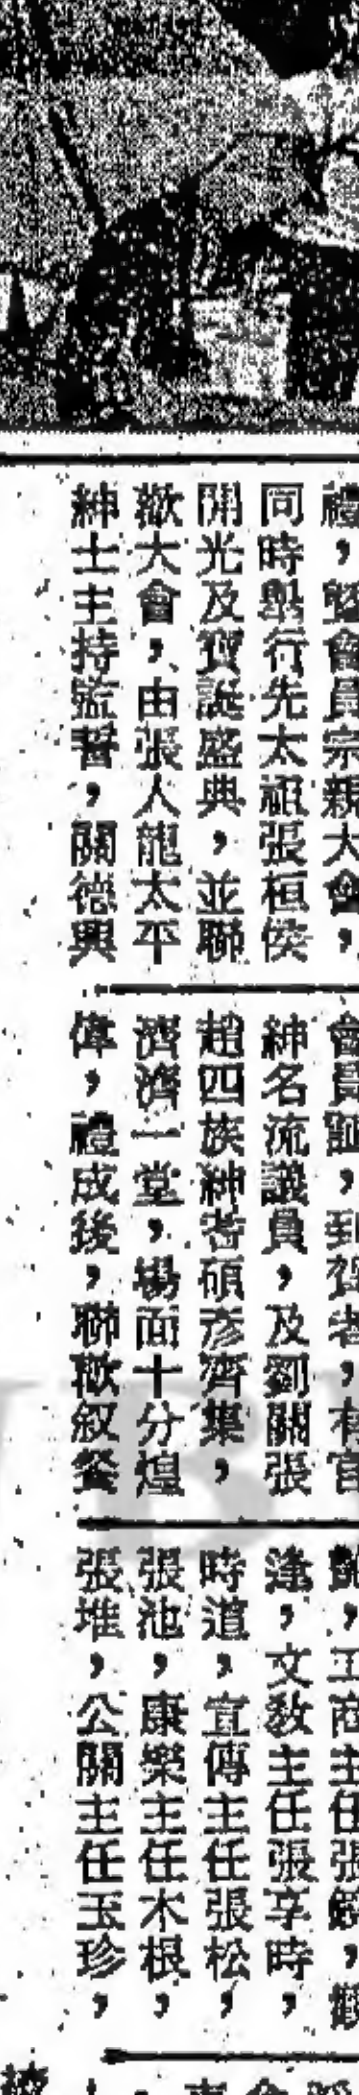 禮，暨會員宗親大會，
同時舉行先太祖張桓侯
開光及寶誕盛典，並聯
歡大會，由張人龍太平
紳士主持監誓，關德興
會員證，到賀者，有官
紳名流議員，及劉關張
趙四族紳耆碩彥濟集，
濟濟一堂，場面十分煌
偉，禮成後，聯歡叙餐
，工商主任張，
逢，文教主任張享時，
時道，宣傳主任張松，
張池，康樂主任木根，
張堆，公關主任玉珍，